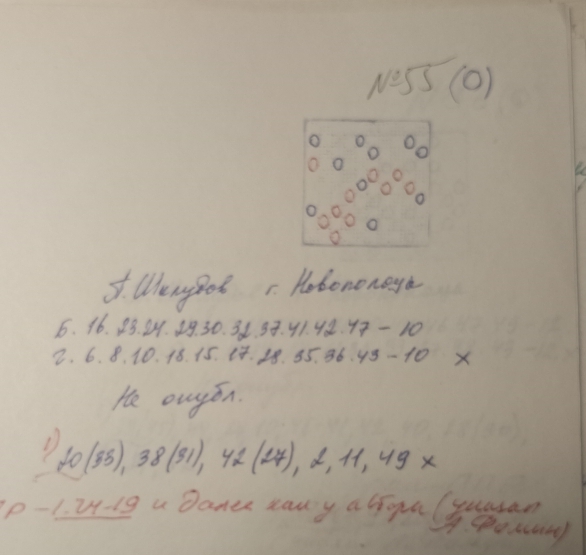 №55 (О)
П. Шклудов г. Новополоцк
Б. 16. 23. 24. 29. 30. 32. 37. 41. 42. 47 – 10
Г. 6. 8. 10. 13. 15. 17. 28. 35. 36. 43 – 10 x
Не опубл.
1) 20(33), 38(31), 42(27), 2, 11, 49 x
– 1. 24-19 и далее как у автора (указал
А. Фомин)